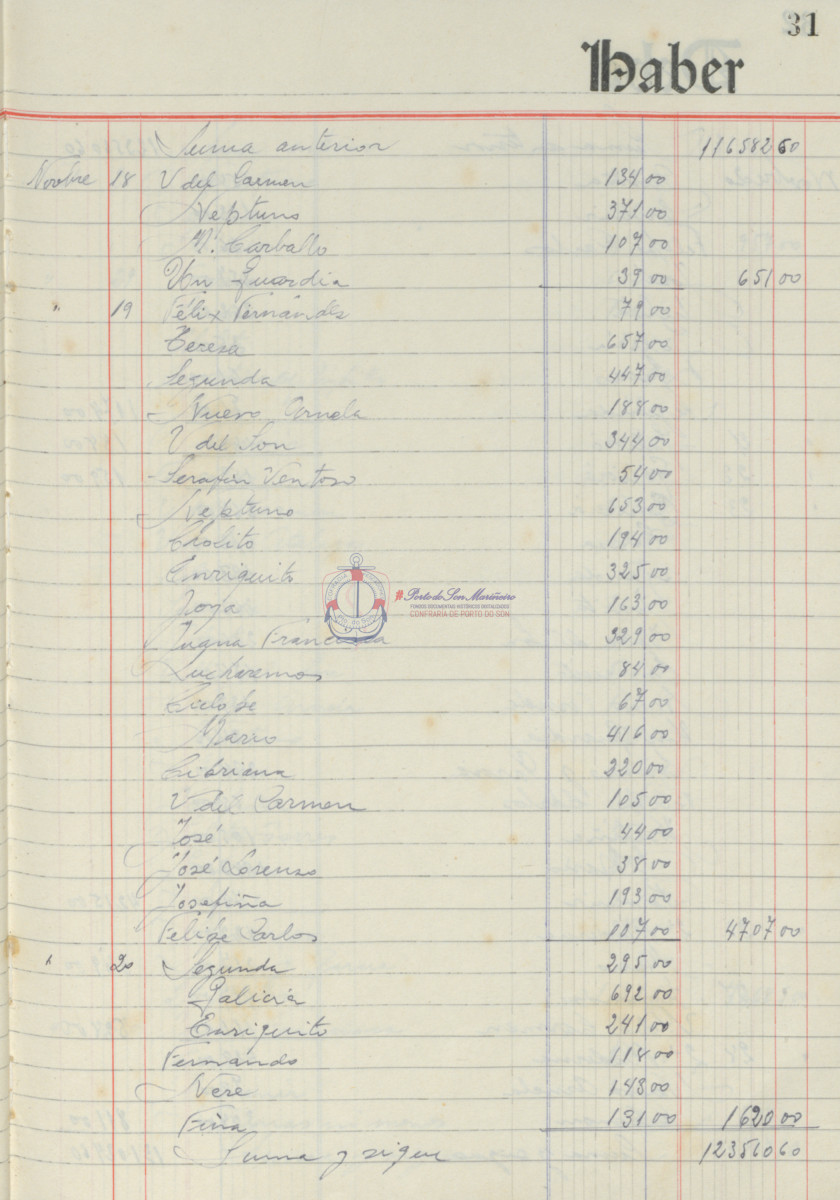 31
Haber
Suma anterior 116582 60
Novbre 18 V del Carmen 134 00
Neptuno 371 00
Mª Carballo 107 00
Un Guardia 39 00 651 00
" 19 Félix Fernándz 79 00
Teresa 657 00
Segunda 447 00
Nuevo Arnela 188 00
V del Son 344 00
Serafín Ventoso 54 00
Neptuno 653 00
Cholito 194 00
Enriquito 325 00
Joya 163 00
Juana Francisca 329 00
#PortodoSonMariñeiro
FONDOS DOCUMENTAIS HISTÓRICOS DIXITALIZADOS
CONFRARÍA DE PORTO DO SON
Lucharemos 84 00
67 00
Mario 416 00
Cibriana 220 00
V del Carmen 105 00
José 44 00
José Lorenzo 38 00
Josefina 193 00
Felipe Carlos 107 00 4707 00
" 20 Segunda 295 00
Galicia 692 00
Enriquito 241 00
Fernando 118 00
Nere 143 00
Fina 131 00 1620 00
Suma y sigue 123560 60